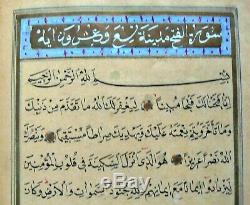 سورة الفتح مدينة تسع وعشرون اية
بسم الله الرحمن الرحيم
إنا فتحنا لك فتحا مبينا ليغفر لك الله ما تقدم من ذنبك
وما تأخر ويتم نعمته عليك ويهديك صراطا مستقيما وينصرك
الله نصرا عزيزا هو الذي أنزل السكينة في قلوب المؤمنين
ليزدادوا إيمانا مع إيمانهم ولله جنود السموات والأرض وكان